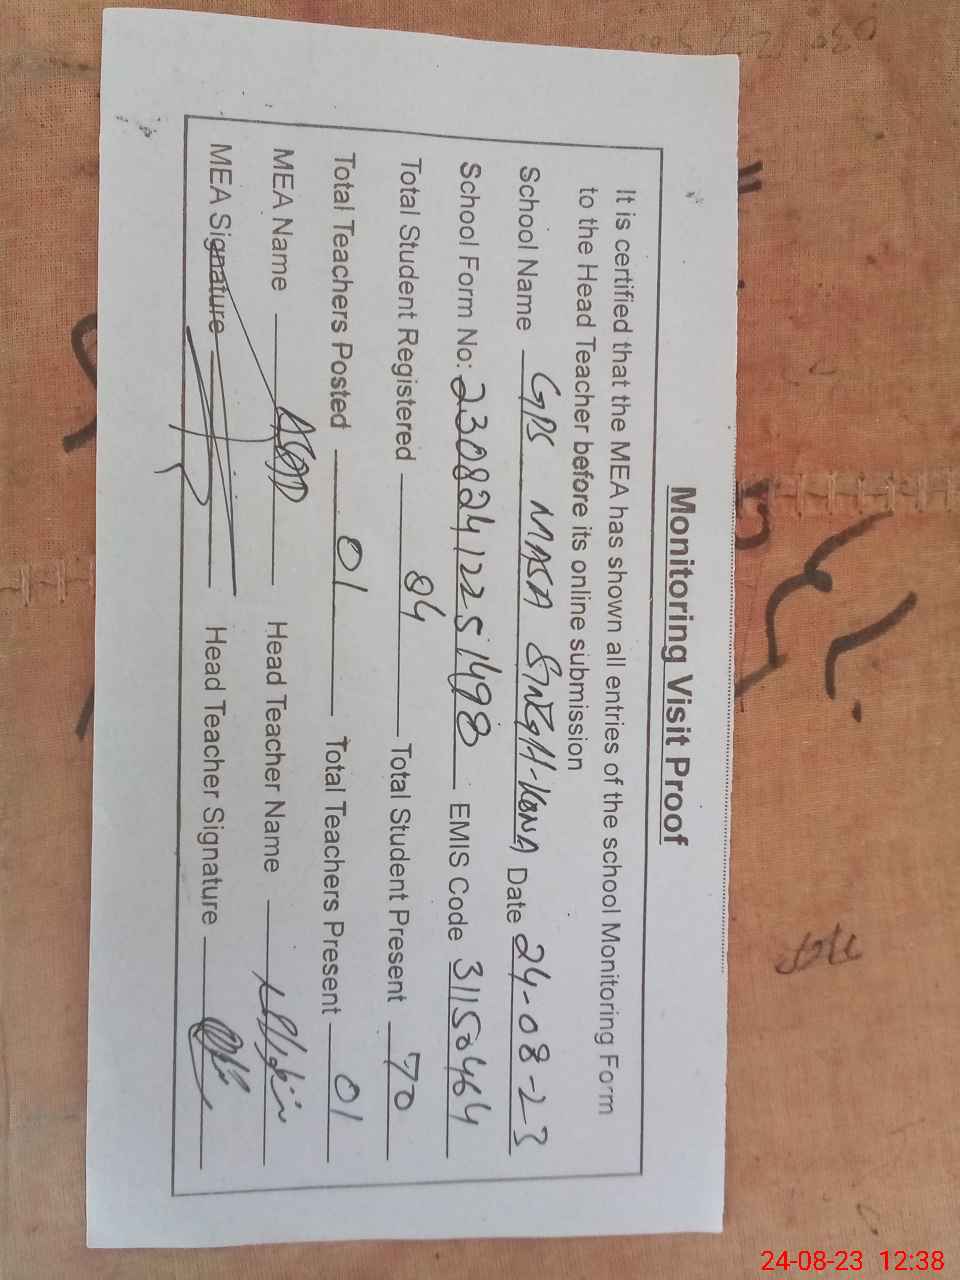 Monitoring Visit Proof
It is certified that the MEA has shown all entries of the school Monitoring Form
to the Head Teacher before its online submission
School Name GPS MASA SINGH-KONA Date 24-08-23
School Form No: 23082412251498 EMIS Code 31150464
Total Student Registered 84 Total Student Present 70
Total Teachers Posted 01 Total Teachers Present 01
MEA Name ASAD Head Teacher Name
MEA Signature Head Teacher Signature
24-08-23 12:38